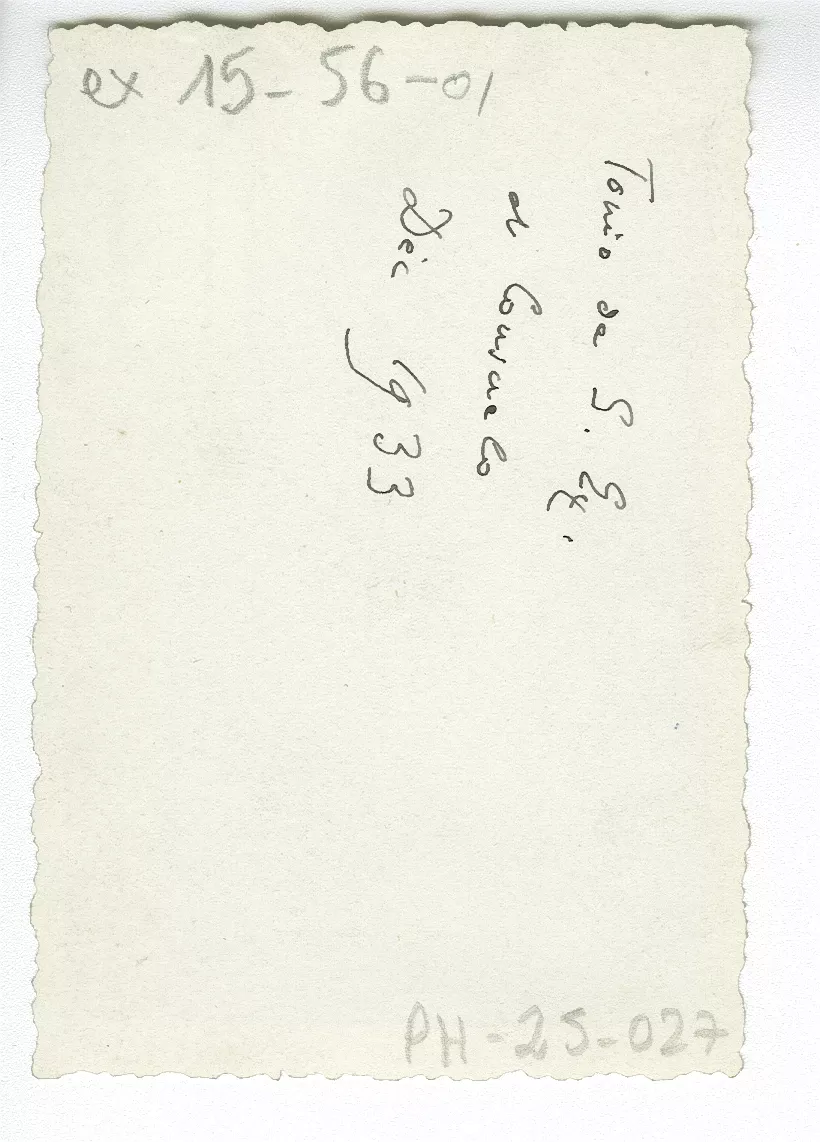 ex 15-56-01
Tonio de S. Ex.
et Consuelo
Déc 1933
PH-25-027